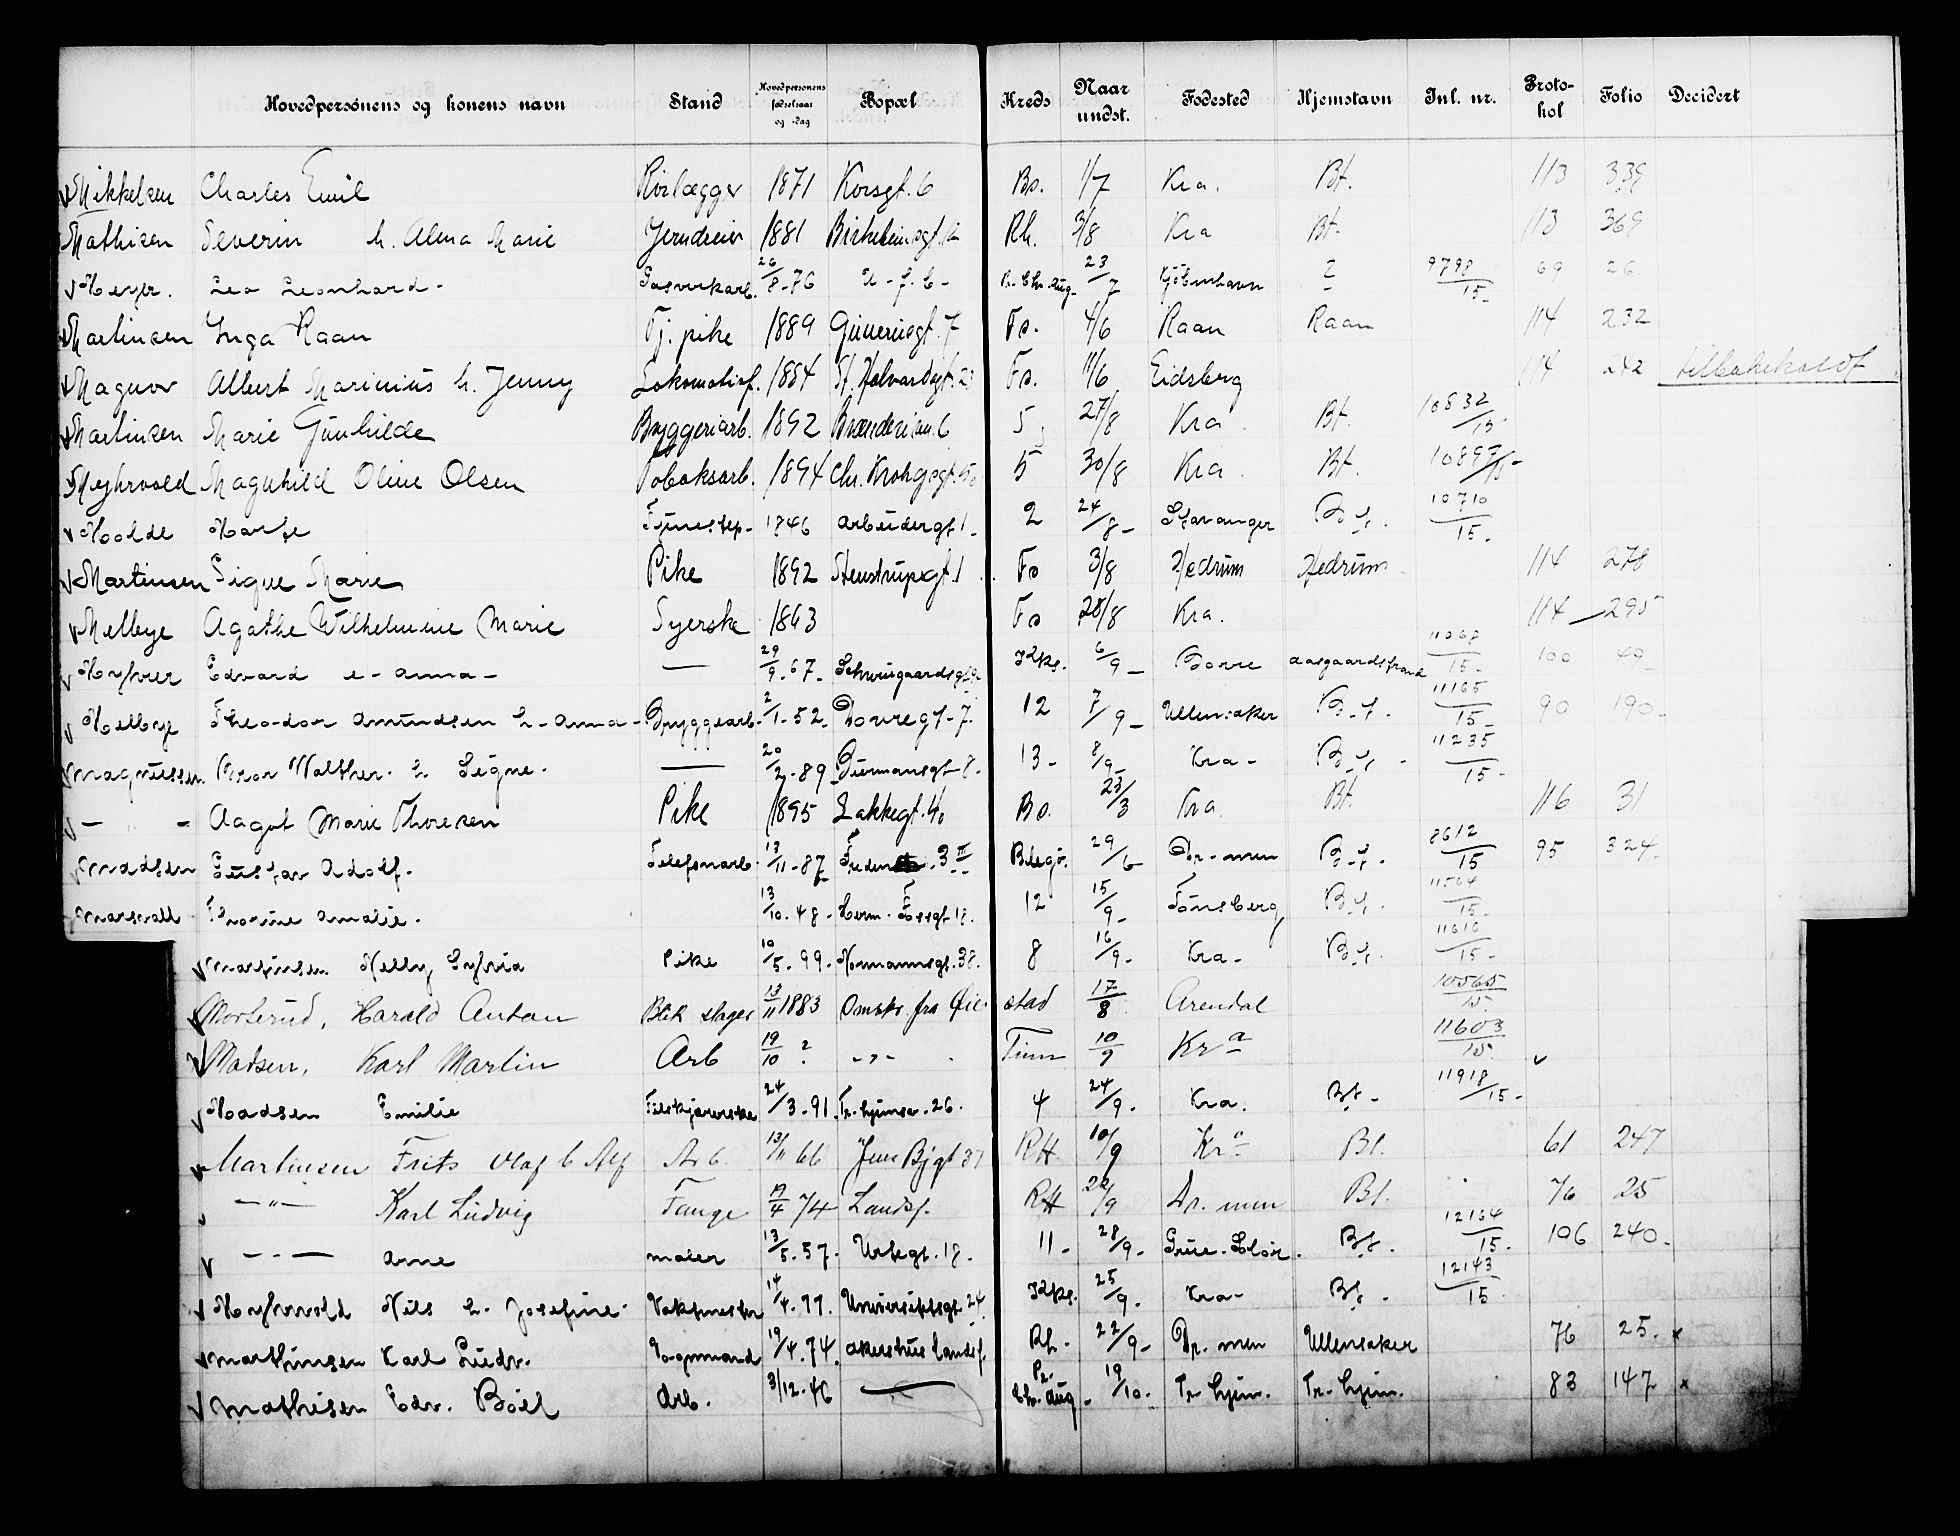 Hovedpersonens og konens navn Stand Hovedpersonens fødselsaar og -dag Bopæl Kreds Naar undst. Fødested Hjemstavn Inl. nr. Protokol Folio Decidert
Mikkelsen Charles Emil Rørlægger 1871 Korsgt. 6 Bo. 1/7 Kra. Bt. 113 339
Mathisen Severin h. Alma Marie Jerndreier 1881 Birkebeinergt. 12 Rh. 3/8 Kra Bt. 113 369
Meyer. Leo Leonhard - Gasverkarb. 26/8-76 U-f-b- Pr. Chr. Aug. 23/7 Kjöbenhavn 9798/15- 69 26
Martinsen Inga Raan Tj. pike 1889 Grünersgt. 7 Fo. 4/6 Raan Raan 114 232
Magnor Albert Marinius h. Jenny Lokomotivf. 1884 St. Halvardsgt. 23 Fo. 11/6 Eidsberg 114 242 tilbakekaldt
Martinsen Marie Gunhilde Bryggeriarb. 1892 Brænderian. 6 5 27/8 Kra. Bt. 10832/15
Myhrvold Magnhild Oline Olsen Tobaksarb. 1894 Chr. Krohgsgt. 50 5 30/8 Kra. Bt. 10897/15-
Molde Marte Tjenestep- 1846 Arbeidergt 1- 2 24/8- Stavanger B.t. 10710/15-
Martinsen Signe Marie Pike 1892 Stenstrupsgt. 1 Fo 3/8 Hedrum Hedrum 114 278
Melbye Agathe Wilhelmine Marie Syerske 1863 Fo 28/8 Kra. 114 295
Myhrer Edvard e- Anna - — 29/9-67- Schweigaardsgt. Kks. 6/9- Borre Aasgaardstrand 11067/15- 100 40-
Melbye Theodor Amundsen h- Anna - Bryggearb- 2/1-52- Dovregt-7- 12 7/9- Ullensaker B.t. 11165/15- 90 190-
Magnussen Bror Walther. h Signe. — 20/2-89 Biermansgt-8- 13- 8/9- Kra- B.t. - 11235/15-
— " - Aagot Marie Thoresen Pike 1895 Lakkegt. 40 Bo. 23/3 Kra. Bt. 116 31
Madsen Gustav Adolf. Telefonarb- 13/11-87 3 II Blegö. 29/6- Dr-men B.t. 8612/15 95 324-
Marsvold Thorine Amalie. 13/10-48- Herm. Fossgt 18. 12 15/9- Tönsberg B.t. 11564/15-
Martinsen Nelly Sylvia Pike 10/5-99- Normannsgt. 38. 8 16/9- Kra- B.t. 11616/15-
Morterud, Harald Anton Blik slager 13/11 1883 Omstr. fra Øiestad 17/8 Arendal 10565/15
Madsen, Karl Martin Arb 19/10 ? -"- Tinn 10/9 Kra 11603/15
Madsen Emilie Filskjærerske 24/3-91 Tr-hjemsv-26. 4 24/9- Kra. Bt- 11918/15-
Martinsen Frits Olaf h Alf Arb. 13/11 66 Jens Bjgt 37 RH. 10/9 Kra Bt. 61 247
—"— Karl Ludvig Fange 19/4 74 Landsf. RH 22/9 Dr. men Bt. 76 25
—"— Arne maler 13/5-57- Urtegt. 18. 11- 28/9- Grue-Solör. Bt. 12164/15- 106 240-
Myhrvold Nils h. Josefine- Vaktmester 14/4-77. Universitetsgt-24. Kks. 25/9- Kra- Bt- 12143/15
Marthinsen Karl Ludv. Vognmand 19/4-74. Akershus landsf. Rh- 22/9- Dr. men Ullensaker 76 25. x
Mathisen Edv. Boël Arb. 3/12-46 — Pr. Chr. Aug- 19/10- Tr. hjem. Tr-hjem. 83 147 x